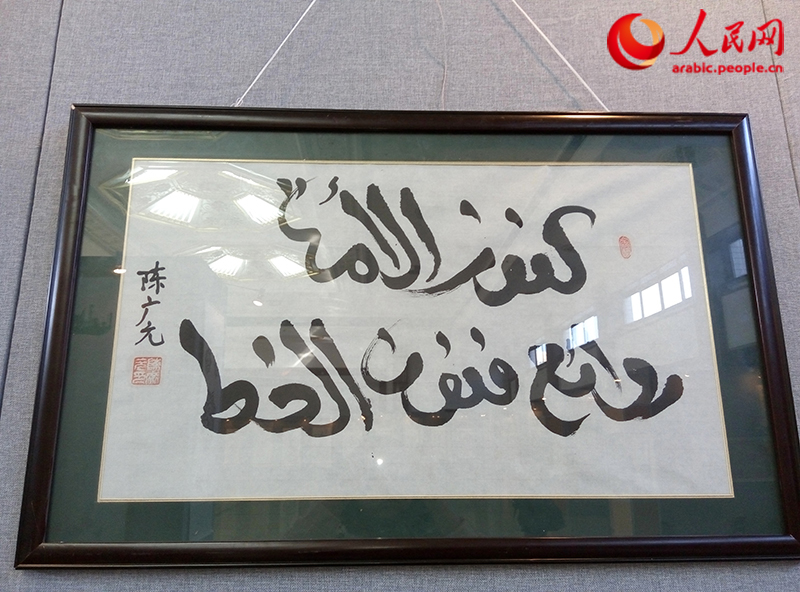 人民网
arabic.people.cn
كنوز الامة
روائع فنون الخط
陈广元